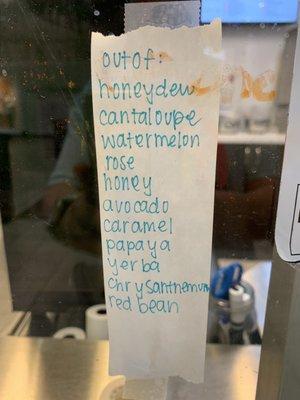 out of:
honeydew
cantaloupe
watermelon
rose
honey
avocado
caramel
papaya
yerba
chrysantnemum
red bean